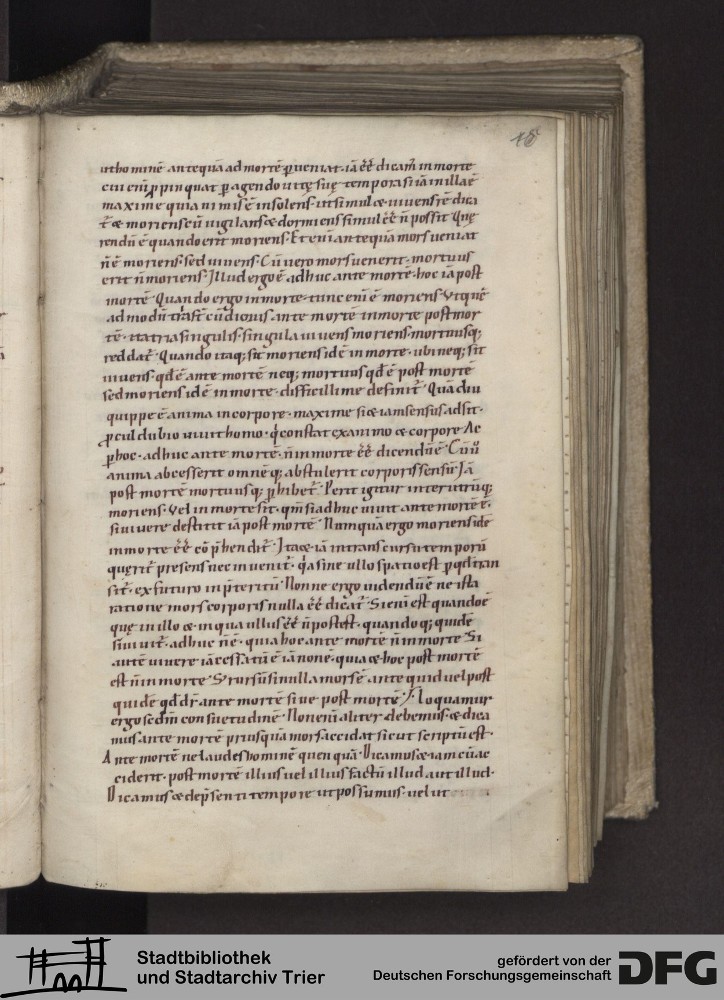 48
ut hominē antequā ad mortē ꝑueniat iā ēē dicam̄ in morte
cui eni ꝓpinquat ꝑagendo uitę suę tempora si iā in illa ē
maxime quia nimis ē insolens ut simul & uiuens ēē dica
t̄ & moriens cū uigilans & dormiens simul ēē n̄ possit Quę
rendū ē quando erit moriens. Etenī antequā mors ueniat
n̄ ē moriens. sed uiuens. Cū uero mors uenerit. mortuus
erit n̄ moriens. Illud ergo ē adhuc ante mortē. hoc iā post
mortē Quando ergo in morte. tunc eni ē moriens. Vt quē
admodū cū dicimus ante mortē in morte post mor
tē. ita tria singulis. singula uiuens moriens. mortuusq;
reddat̄ Quando itaq; sit moriens id ē in morte. ubi neq; sit
uiuens. qd̄ ē ante mortē neq; mortuus qd̄ ē post mortē
sed moriens id ē in morte. difficillime definit̄ Quā diu
quippe ē anima in corpore. maxime si & iam sensus adsit.
ꝓcul dubio uiuit homo. q̇ constat ex animo & corpore Ac
ꝑ hoc. adhuc ante mortē. n̄ in morte ēē dicendū ē Cū ů
anima abcesserit omnēq; abstulerit corporis sensū Iā
post mortē mortuusq; ꝑhibet̄ Perit igitur inter utrūq;
moriens. Vel in morte sit. qm̄ si adhuc uiuit ante mortē ē.
si uiuere destitit iā post mortē Numquā ergo moriens id ē
in morte ēē cōp̄hendit̄. Ita & iā in transcursu temporū
quęrit̄ presens nec inuenit̄. q̇a sine ullo spatio est ꝑ qd̄ tran
sit̄. ex futuro in p̄teritū Nonne ergo uidendū ē ne ista
ratione mors corporis nulla ēē dicat̄ Si eni est quando ē
quę in illo & in qua ullus ēē n̄ potest. quando q; quidē
si uiuit̄. adhuc n̄ ē. quia hoc ante mortē n̄ in morte Si
autē uiuere iā cessatū ē iā non ē. quia & hoc post mortē
est n̄ in morte S; rursū si nulla mors ē ante quid uel post
quid ē qd̄ dr̄ ante mortē siue post mortē Loquamur
ergo scdm̄ consuetudinē. Non eni aliter debemus & dica
mus ante mortē priusquā mors accidat sicut scriptū est.
Ante mortē ne laudes hominē quenquā Dicamus & iam cū ac
ciderit. post mortē illius uel illius factū illud aut illud.
Dicamus & de p̄senti tempore ut possumus. uel ut
Stadtbibliothek
und Stadtarchiv Trier
gefördert von der
Deutschen Forschungsgemeinschaft
DFG